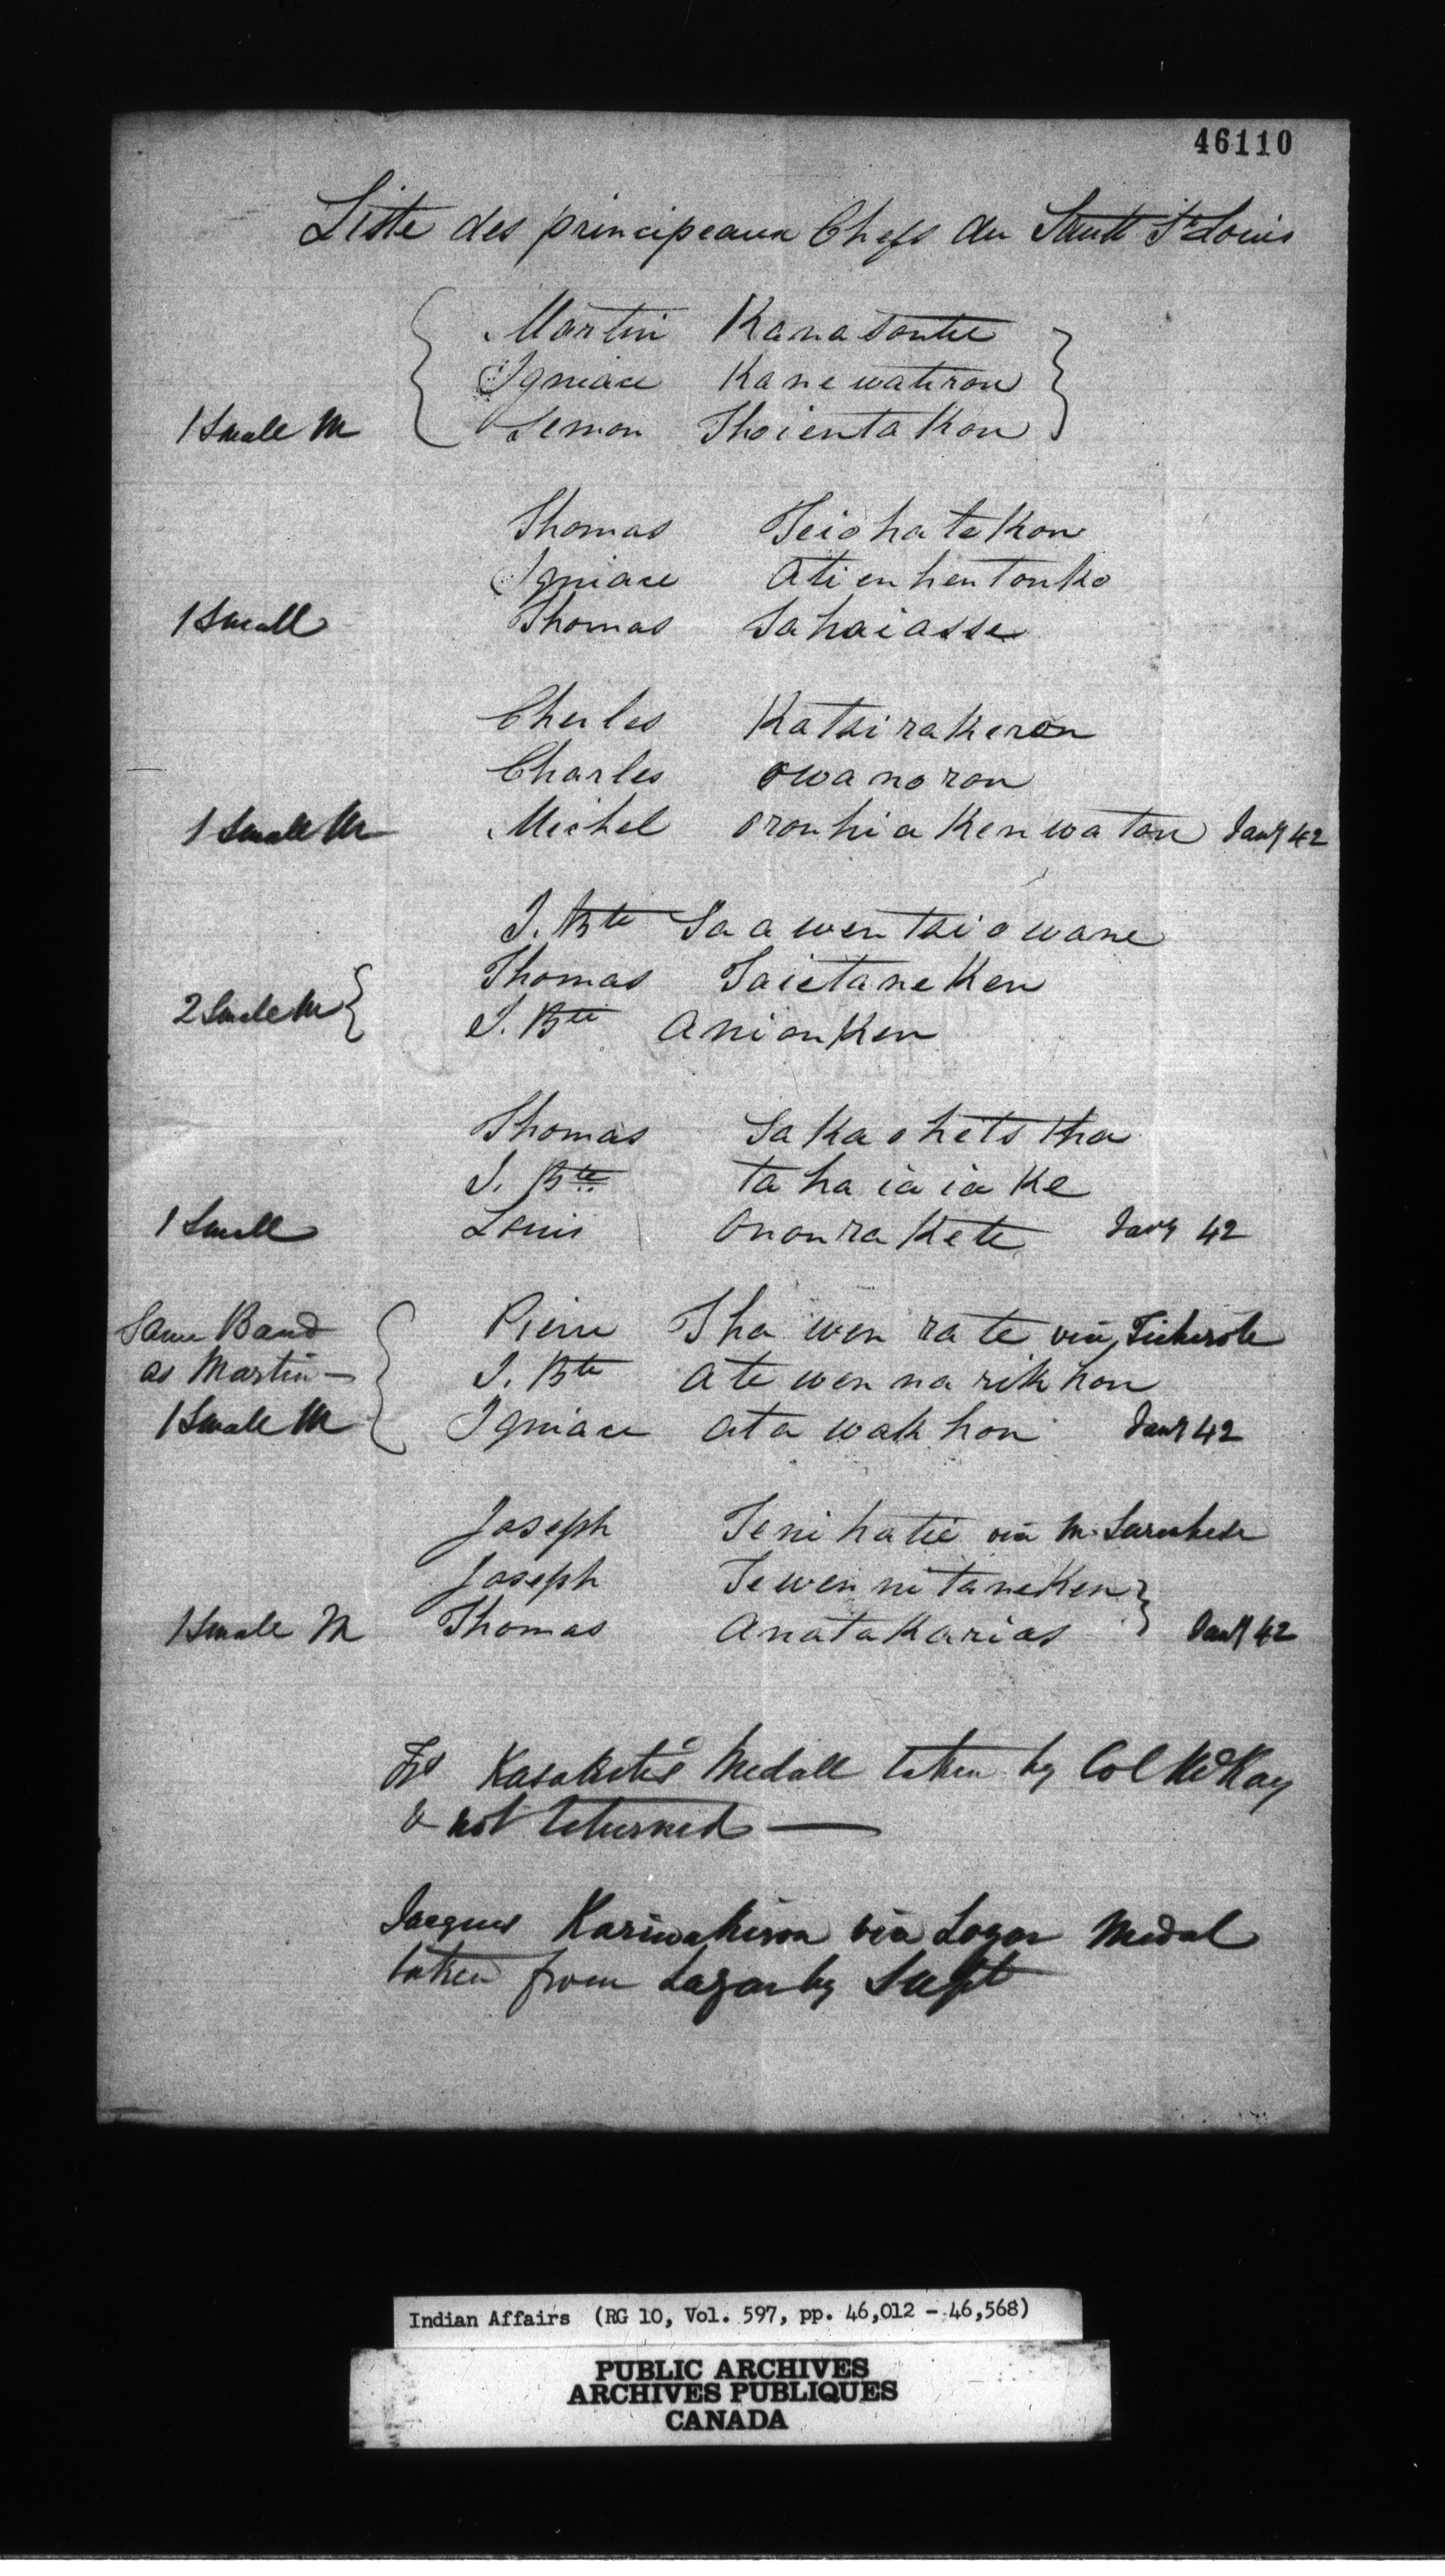 46110
Liste des principeaux Chefs du Sault St Louis
Martin Kanasontie
Igniace Kanewatiron
1 Small M Semon Thoientakon
Thomas Teiohatekon
Igniace Atienhentonko
1 Small Thomas Sahaiasse
Charles Katsirakeron
Charles Owanoron
1 Small M Michel Oronhiakenwaton Jany 42
J. Bte Saawentsiowane
Thomas Taietaneken
2 Small M J. Bte Anionken
Thomas Sakaohetstha
J. Bte tahaiaiake
1 Small Louis Ononrakete Jany 42
Same Band Pierre Thawenrate vice
as Martin — J. Bte Atewennarikhon
1 Small M Igniace Atawakhon Jany 42
Joseph Tenihatie vice
Joseph Tewennitaneken
1 Small M Thomas Anatakarias Jany 42
Medall taken by Col McKay
& not returned —
Jacques vice Medal
taken from by Supt
Indian Affairs (RG 10, Vol. 597, pp. 46,012 - 46,568)
PUBLIC ARCHIVES
ARCHIVES PUBLIQUES
CANADA